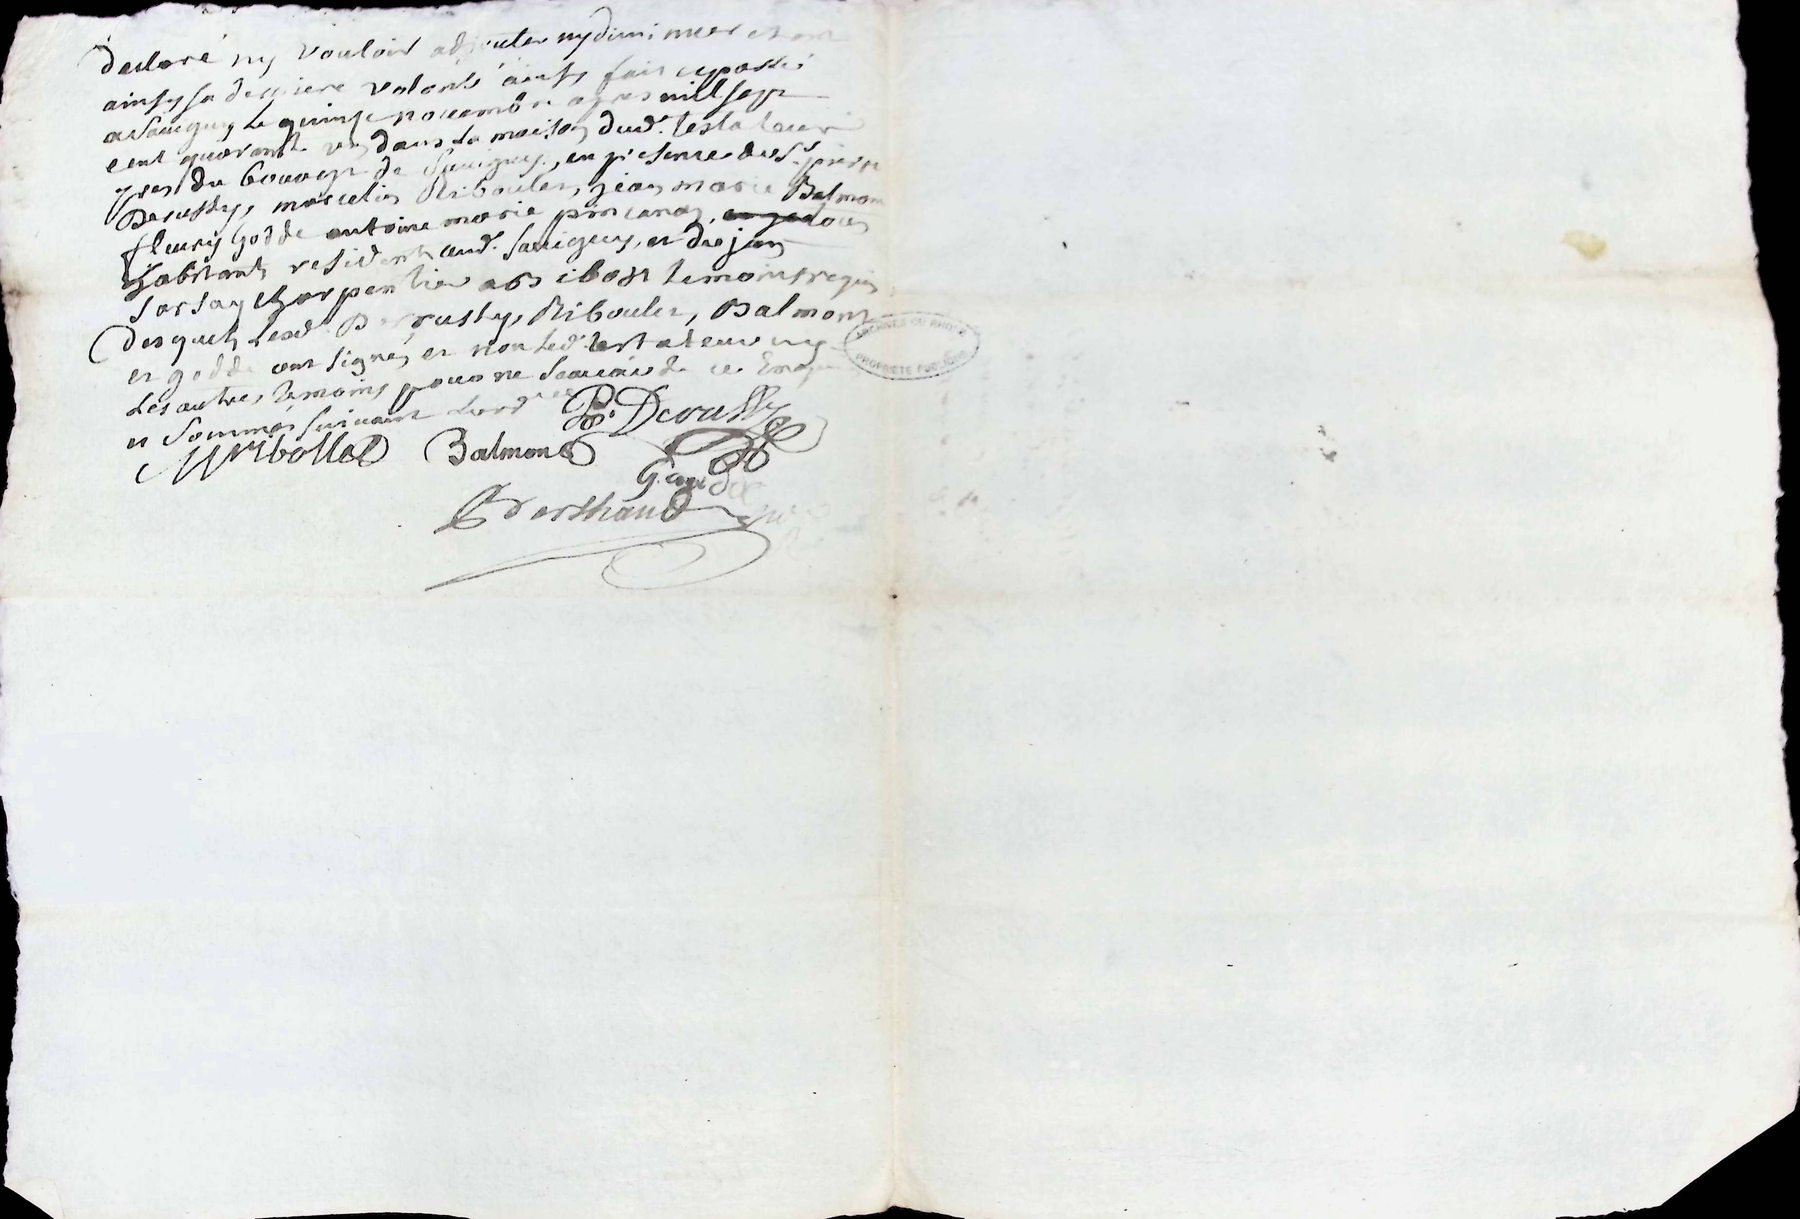 declaré ny vouloir adjouter ny diminuer
ainsy sa derniere volonté ainsy fait et passé
a Savigny le quinze novembre apres mill sept
cent quarante dans la maison dud. testateur
pres du bourg de Savigny, en presence des Srs
Derussy, marcelin Riboulet, jean marie Balmont
fleury godde antoine marie
habitants residents aud. Savigny, et de jean
charpentier temoins requis
desquels lesd. Derussy, Riboulet, Balmont
et godde ont signé, et non led. testateur ny
les autres temoins pour ne scavoir de ce
et sommés suivant lord
P. Derussy
Balmont
Berthaud
ARCHIVES DU RHÔNE
PROPRIÉTÉ PUBLIQUE